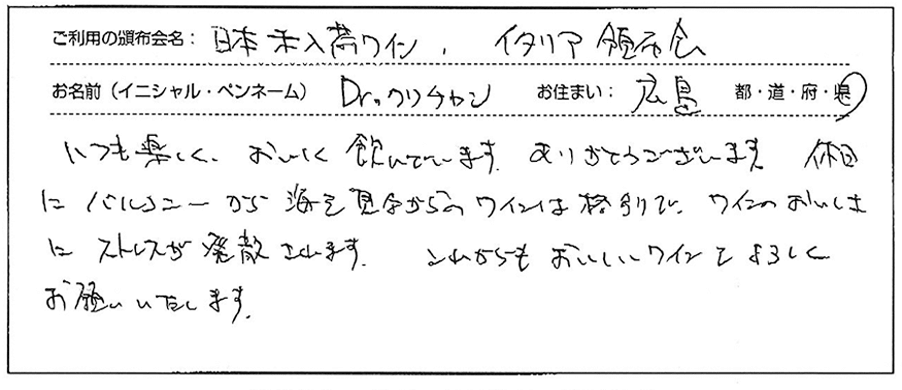 ご利用の頒布会名: 日本未入荷ワイン, イタリア頒布会
お名前(イニシャル・ペンネーム) Dr.クリチャン お住まい: 広島 都・道・府・県
いつも楽しく、おいしく飲んでいます。ありがとうございます。 休日
にバルコニーから海を見ながらのワインは格別で、ワインのおいしさ
にストレスが発散されます。 これからもおいしいワインをよろしく
お願いいたします。